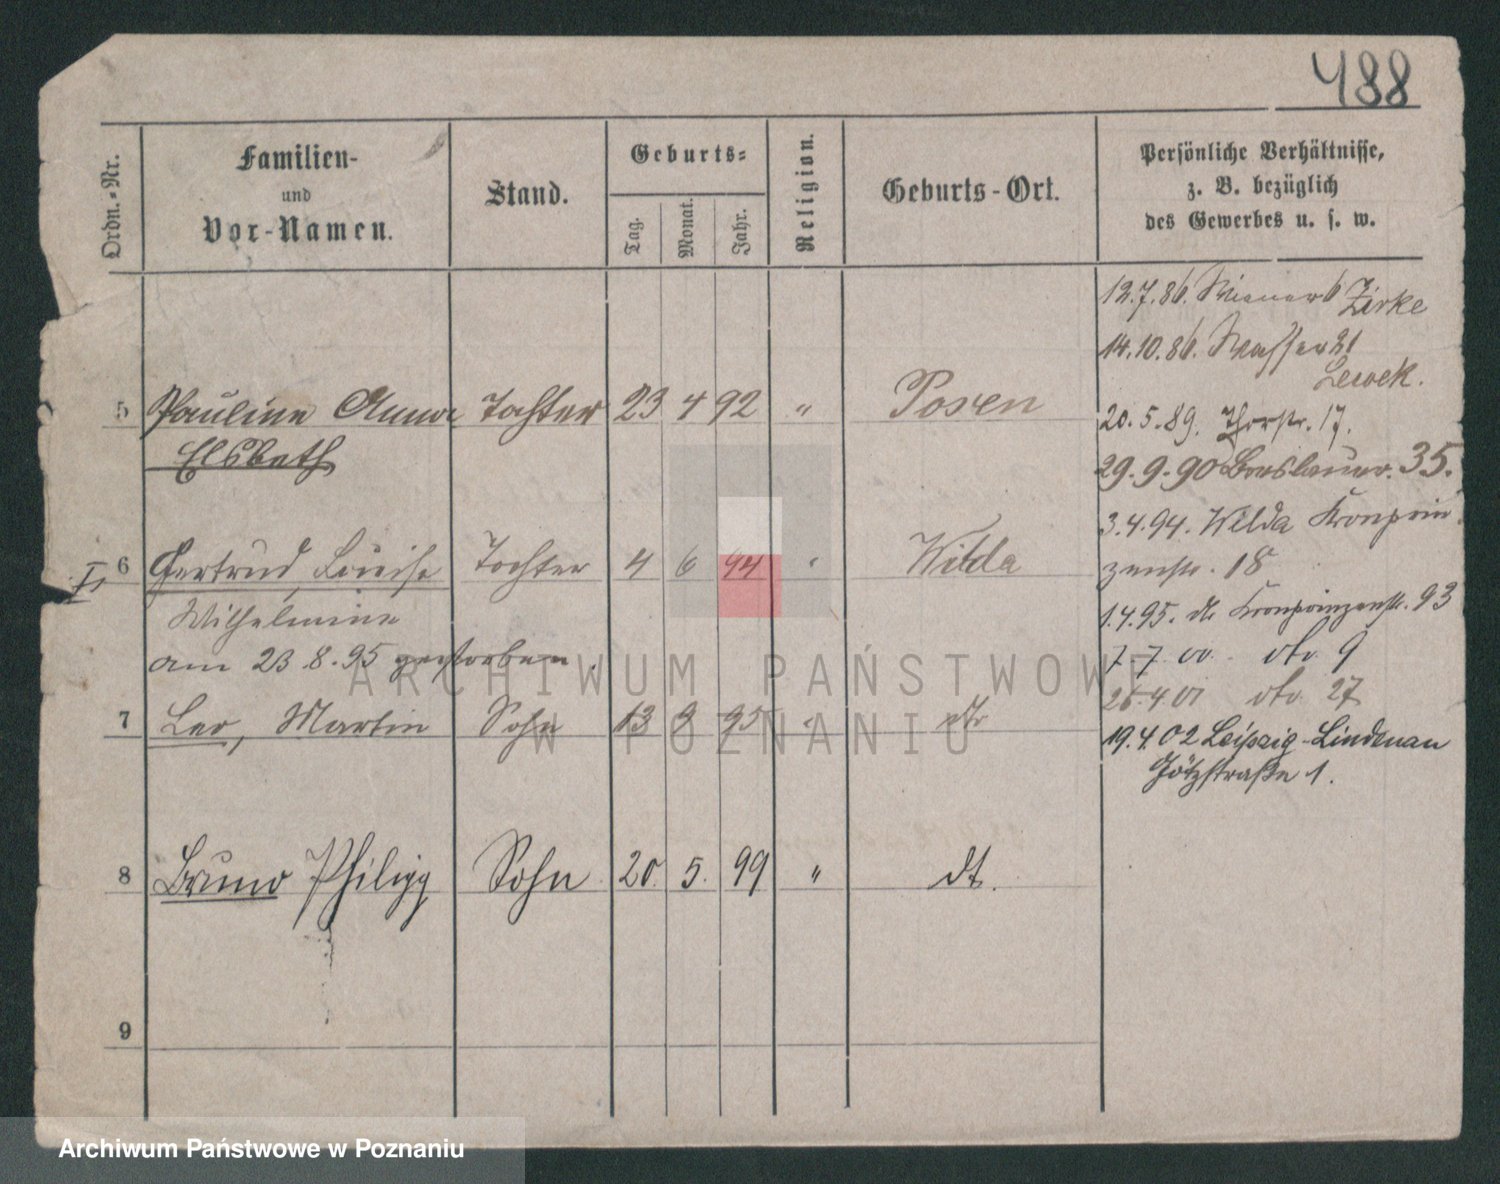 488
Ordn.-Nr.
Familien-
und
Vor-Namen.
Stand.
Geburts-
Tag.
Monat.
Jahr.
Religion.
Geburts-Ort.
Persönliche Verhältnisse,
z. B. bezüglich
des Gewerbes u. s. w.
12.7.86. Wiener 6 Zirke
14.10.86. Wasser 21
Lewek.
5 Pauline Anna Tochter 23 4 92 " Posen
Elsbeth
20.5.89. Thorstr. 17.
29.9.90 Breslauer. 35.
3.4.94. Wilda Kronprin
zenstr. 18
6 Gertrud, Louise Tochter 4 6 94 " Wilda
Wilhelmine
am 23 8.95 gestorben.
1.4.95. dto Kronprinzenstr. 93
7.7.00. dto 9
26.4.01 dto 27
7 Leo, Martin Sohn 13 9 95 " dto
19.4.02 Leipzig-Lindenau
Götzstraße 1.
8 Bruno Philipp Sohn 20. 5. 99 " dt.
9
ARCHIWUM PAŃSTWOWE
W POZNANIU
Archiwum Państwowe w Poznaniu